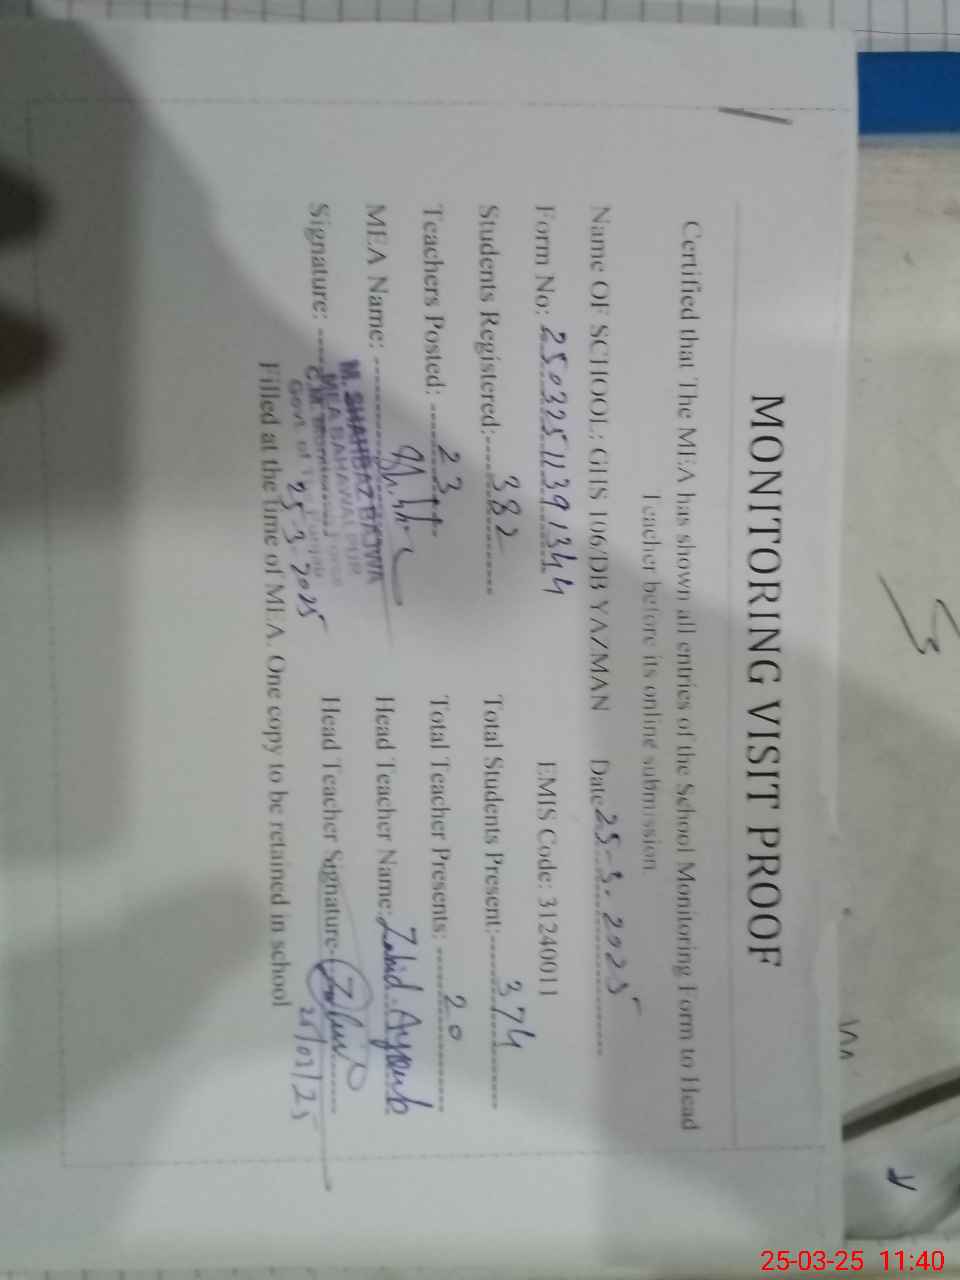 MONITORING VISIT PROOF
Certified that The MEA has shown all entries of the School Monitoring Form to Head
Teacher before its online submission.
Name OF SCHOOL: GHS 106/DB YAZMAN Date 25-3-2025
Form No: 25032511391344 EMIS Code: 31240011
Students Registered: 382 Total Students Present: 374
Teachers Posted: 23 Total Teacher Presents: 20
MEA Name: Head Teacher Name: Zahid Ayoub
M. SHAHBAZ BAJWA
MEA BAHAWALPUR
Signature: Head Teacher Signature
Govt. of The Punjab
25-3-2025 25/03/25
Filled at the time of MEA. One copy to be retained in school
25-03-25 11:40